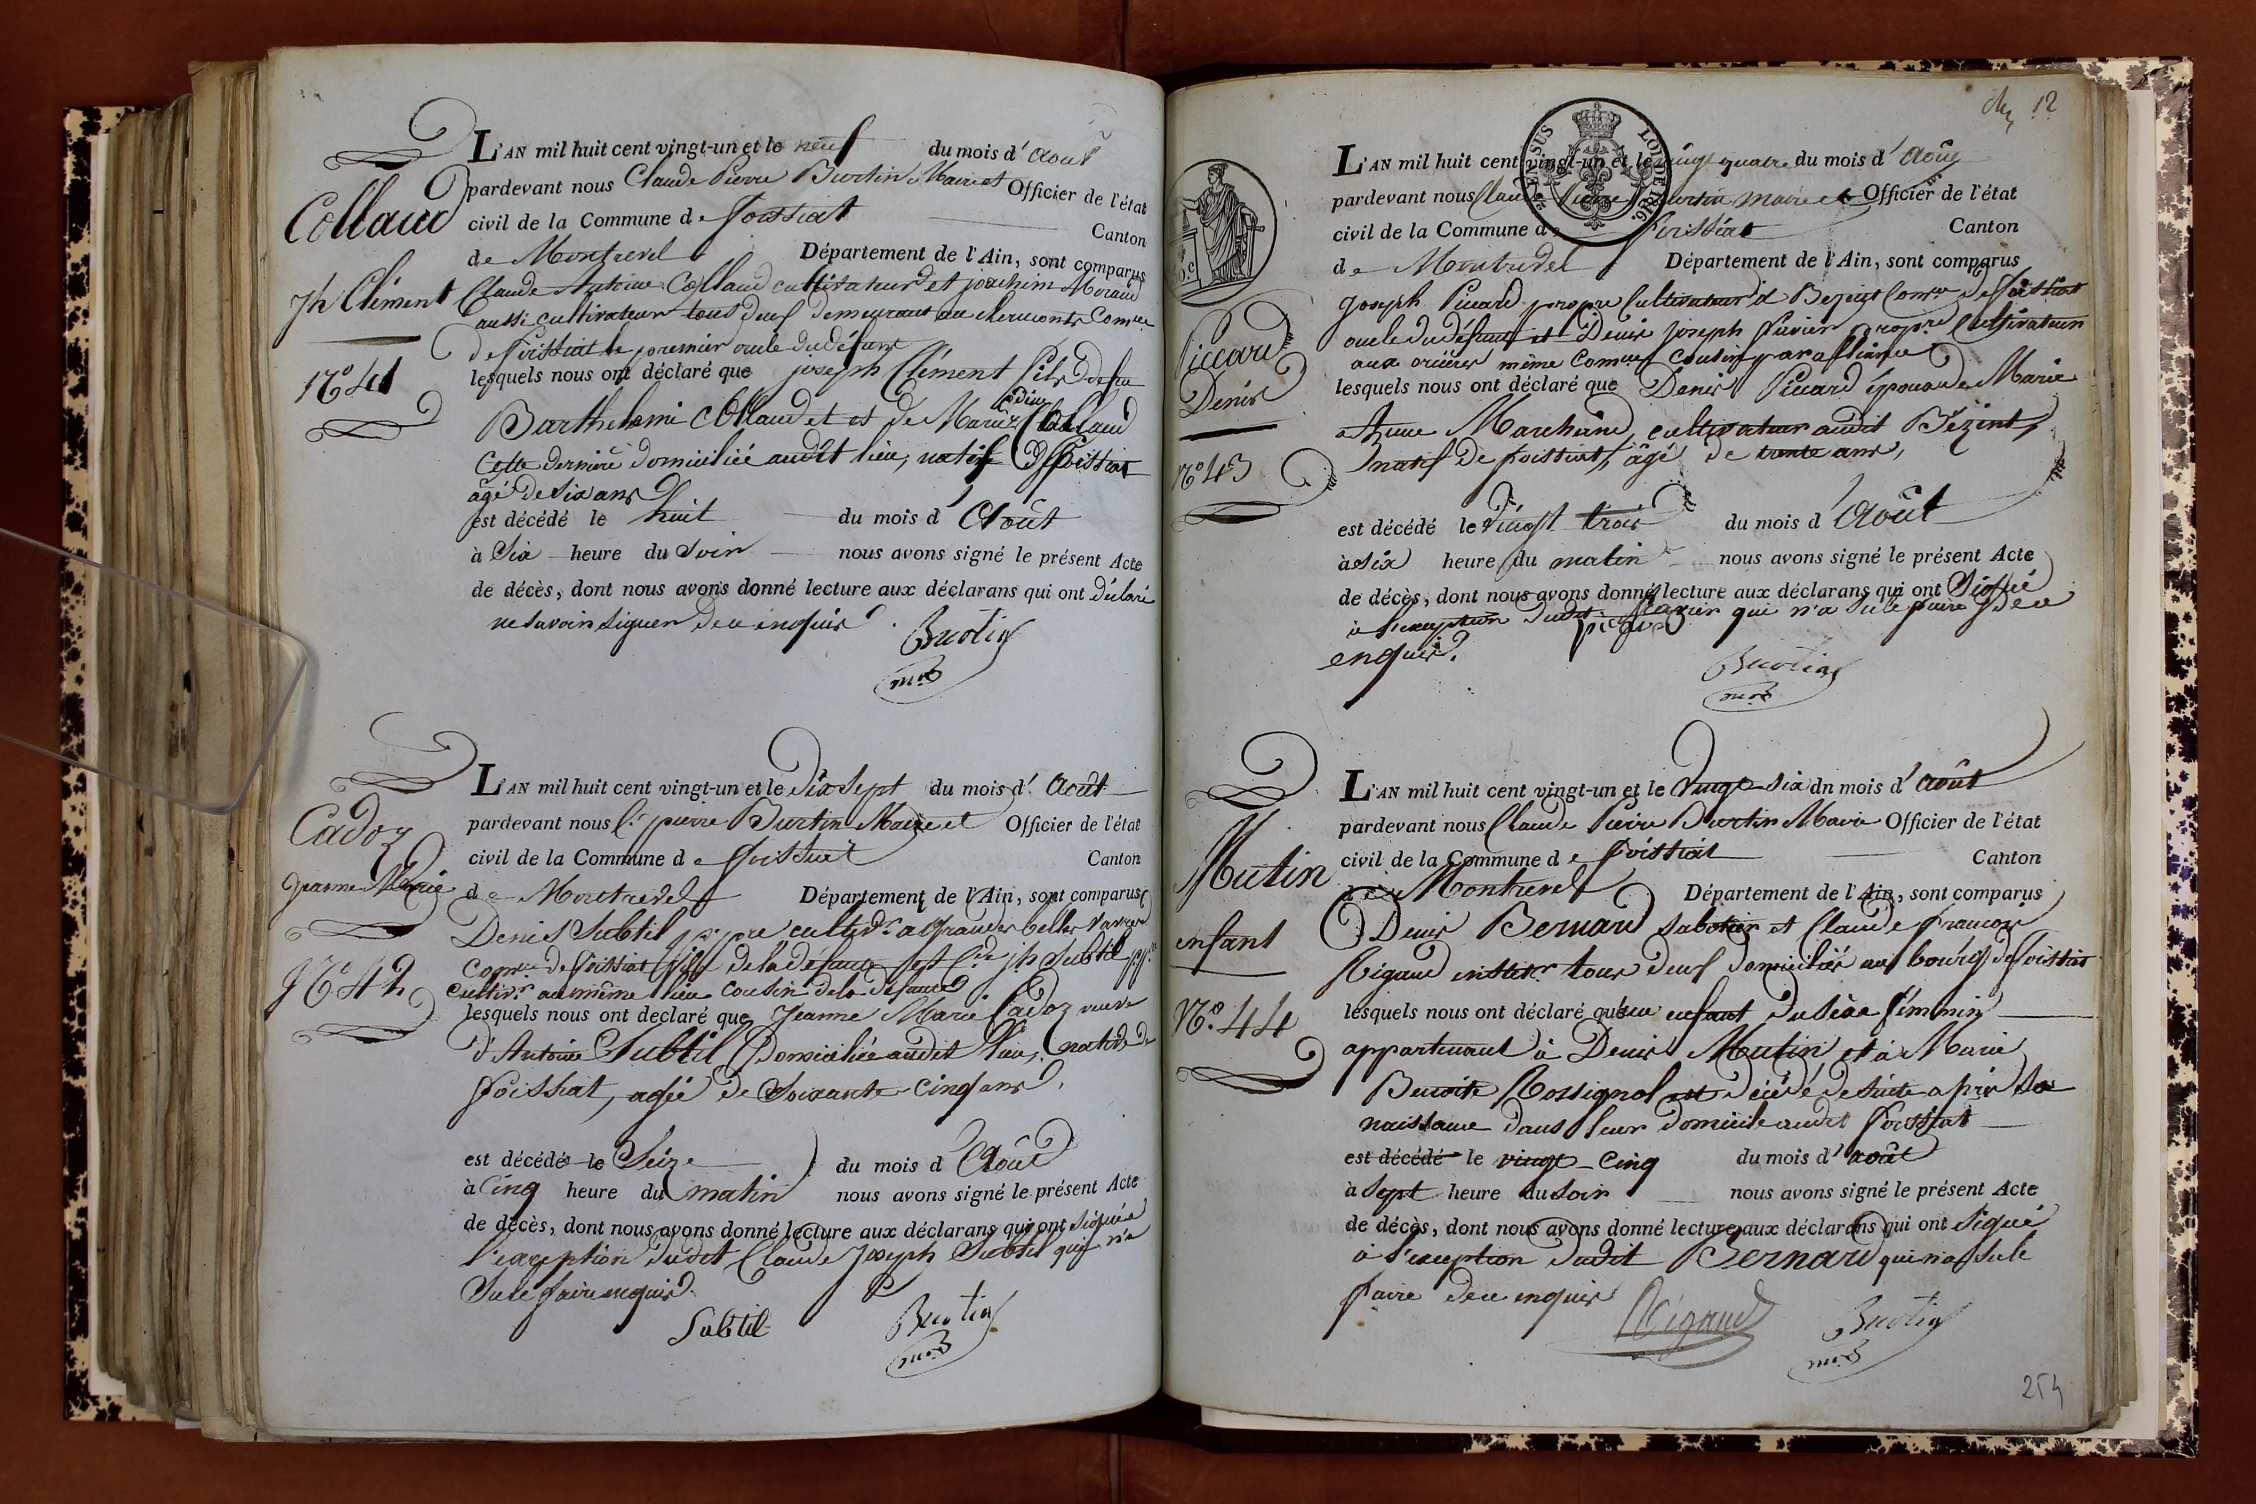 Collaud
Jh Clément
N.º 41
L'AN mil huit cent vingt-un et le neuf du mois d'Aout
pardevant nous Claude Pierre Burtin Maire et Officier de l'état
civil de la Commune de foissiat Canton
de Montrevel Département de l'Ain, sont comparus
Claude Antoine Collaud cultivateur et joachim Moraud
aussi cultivateur tous deux demeurant au clermonts Comune
de foissiat le premier oncle du défunt
lesquels nous ont déclaré que joseph Clément fils de feu
Barthelemi Collaud et et de Marie Collaud
Cette dernière domiciliée audit lieu, natif de foissiat
âgé de six ans
est décédé le huit du mois d'Août
à Six heure du Soir nous avons signé le présent Acte
de décès, dont nous avons donné lecture aux déclarans qui ont déclaré
ne savoir signer de ce enquis.
Burtin
mre
Cadoz
Jeanne Marie
N.º 42
L'AN mil huit cent vingt-un et le dix sept du mois d'Août
pardevant nous C. pierre Burtin Maire et Officier de l'état
civil de la Commune de foissiat Canton
de Montrevel Département de l'Ain, sont comparus
Denis Subtil ppre cultivr a Grandes belles Vavres
comne de foissiat fils de la défunte et Cde jh Subtil
cultivr au même lieu cousin de la défunte
lesquels nous ont declaré que Jeanne Marie Cadoz veuve
d'Antoine Subtil Domiciliée audit lieu, native de
foissiat, agée de Soixante cinq ans.
est décédé le Seize du mois d'Août
à Cinq heure du matin nous avons signé le présent Acte
de décès, dont nous avons donné lecture aux déclarans qui ont signé à
l'exception dudit Claude Joseph Subtil qui n'a
Su le faire enquis.
Subtil
Burtin
mre
12
Piccard
Denis
N.º 43
L'AN mil huit cent vingt-un et le vingt quatre du mois d'Août
pardevant nous Claude Pierre Burtin maire et Officier de l'état
civil de la Commune de foissiat Canton
de Montrevel Département de l'Ain, sont comparus
Joseph Picard propre Cultivateur à Bezeint Comne de foissiat
oncle du défunt et Denis Joseph favier propre Cultivateur
aux même Comne cousin par alliance
lesquels nous ont déclaré que Denis Picard époux de Marie
Anne Marchand, cultivateur audit Bézint,
natif de foissiat, âgé de trente ans,
est décédé le Vingt trois du mois d'Août
à six heure du matin nous avons signé le présent Acte
de décès, dont nous avons donné lecture aux déclarans qui ont Signé
à l'exception dudit favier qui n'a su le faire de ce
enquis.
Burtin
mre
Mutin
enfant
N.º 44
L'AN mil huit cent vingt-un et le Vingt-six dn mois d'Août
pardevant nous Claude Pierre Burtin Maire Officier de l'état
civil de la Commune de foissiat Canton
de Montrevel Département de l'Ain, sont comparus
Denis Bernard sabotier et Claude François
Rigaud instetr tous deux domiciliés au bourg de foissiat
lesquels nous ont déclaré qu'un enfant du sèxe féminin
appartenant à Denis Mutin et à Marie
Benoite Rossignol est décédé de suite après sa
naissance dans leur domicile audit foissiat
est décédé le vingt-cinq du mois d'août
à sept heure du soir nous avons signé le présent Acte
de décès, dont nous avons donné lecture aux déclarans qui ont signé
à l'exception dudit Bernard qui n'a su le
faire de ce enquis
Rigaud
Burtin
mre
254